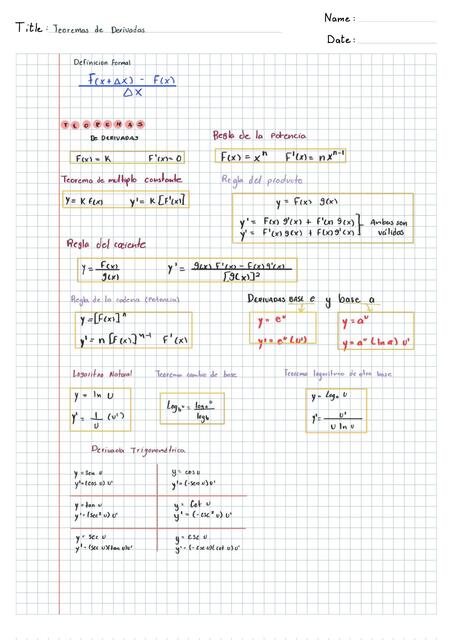 Name:
Title: Teoremas de Derivadas
Date:
Definicion Formal
F(x+Δx) - F(x)
Δx
TEOREMAS
DE DERIVADAS
F(x) = K F'(x)=0
Regla de la potencia
F(x) = x^n F'(x) = nx^n-1
Teorema de multiplo constante
y= K F(x) y'= K[F'(x)]
Regla del producto
y = F(x) g(x)
y' = F(x) g'(x) + F'(x) g(x)
y' = F'(x) g(x) + F(x) g'(x)
Ambas son
válidas
Regla del cociente
y = F(x)
g(x)
y' = g(x) F'(x) - F(x) g'(x)
[g(x)]²
Regla de la cadena (Potencia)
y = [F(x)]^n
y' = n [F(x)]^n-1 F'(x)
DERIVADAS BASE e y base a
y = e^u
y' = e^u (u')
y = a^u
y' = a^u (ln a) u'
Logaritmo Natural
y = ln u
y' = 1 (u')
u
Teorema cambio de base
Teorema logaritmo de otra base
y'= u'
Derivada Trigonométrica
y = sen u
y'= (cos u) u'
y = cos u
y' = (-sen u) u'
y = tan u
y' = (sec² u) u'
y = cot u
y' = (-csc² u) u'
y = sec u
y' = (sec u)(tan u) u'
y = csc u
y' = (-csc u)(cot u) u'